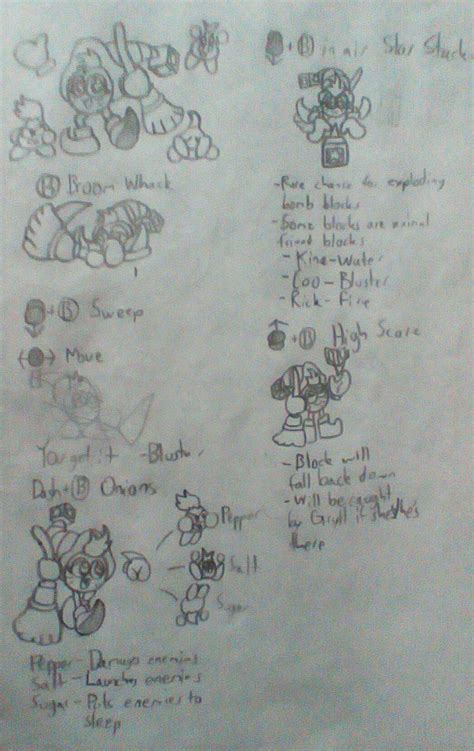 B Broom Whack
+ B Sweep
Move
You get it - Bluster
Dash + B Onions
Pepper
Salt
Sugar
Pepper - Damages enemies
Salt - Launches enemies
Sugar - Puts enemies to
sleep
+ B in air Star Stacker
- Rare chance for exploding
bomb blocks
- Some blocks are animal
friend blocks
- Kine - Water
- Coo - Bluster
- Rick - Fire
+ B High Score
- Block will
fall back down
- Will be caught
by Gryll if she/he's
there